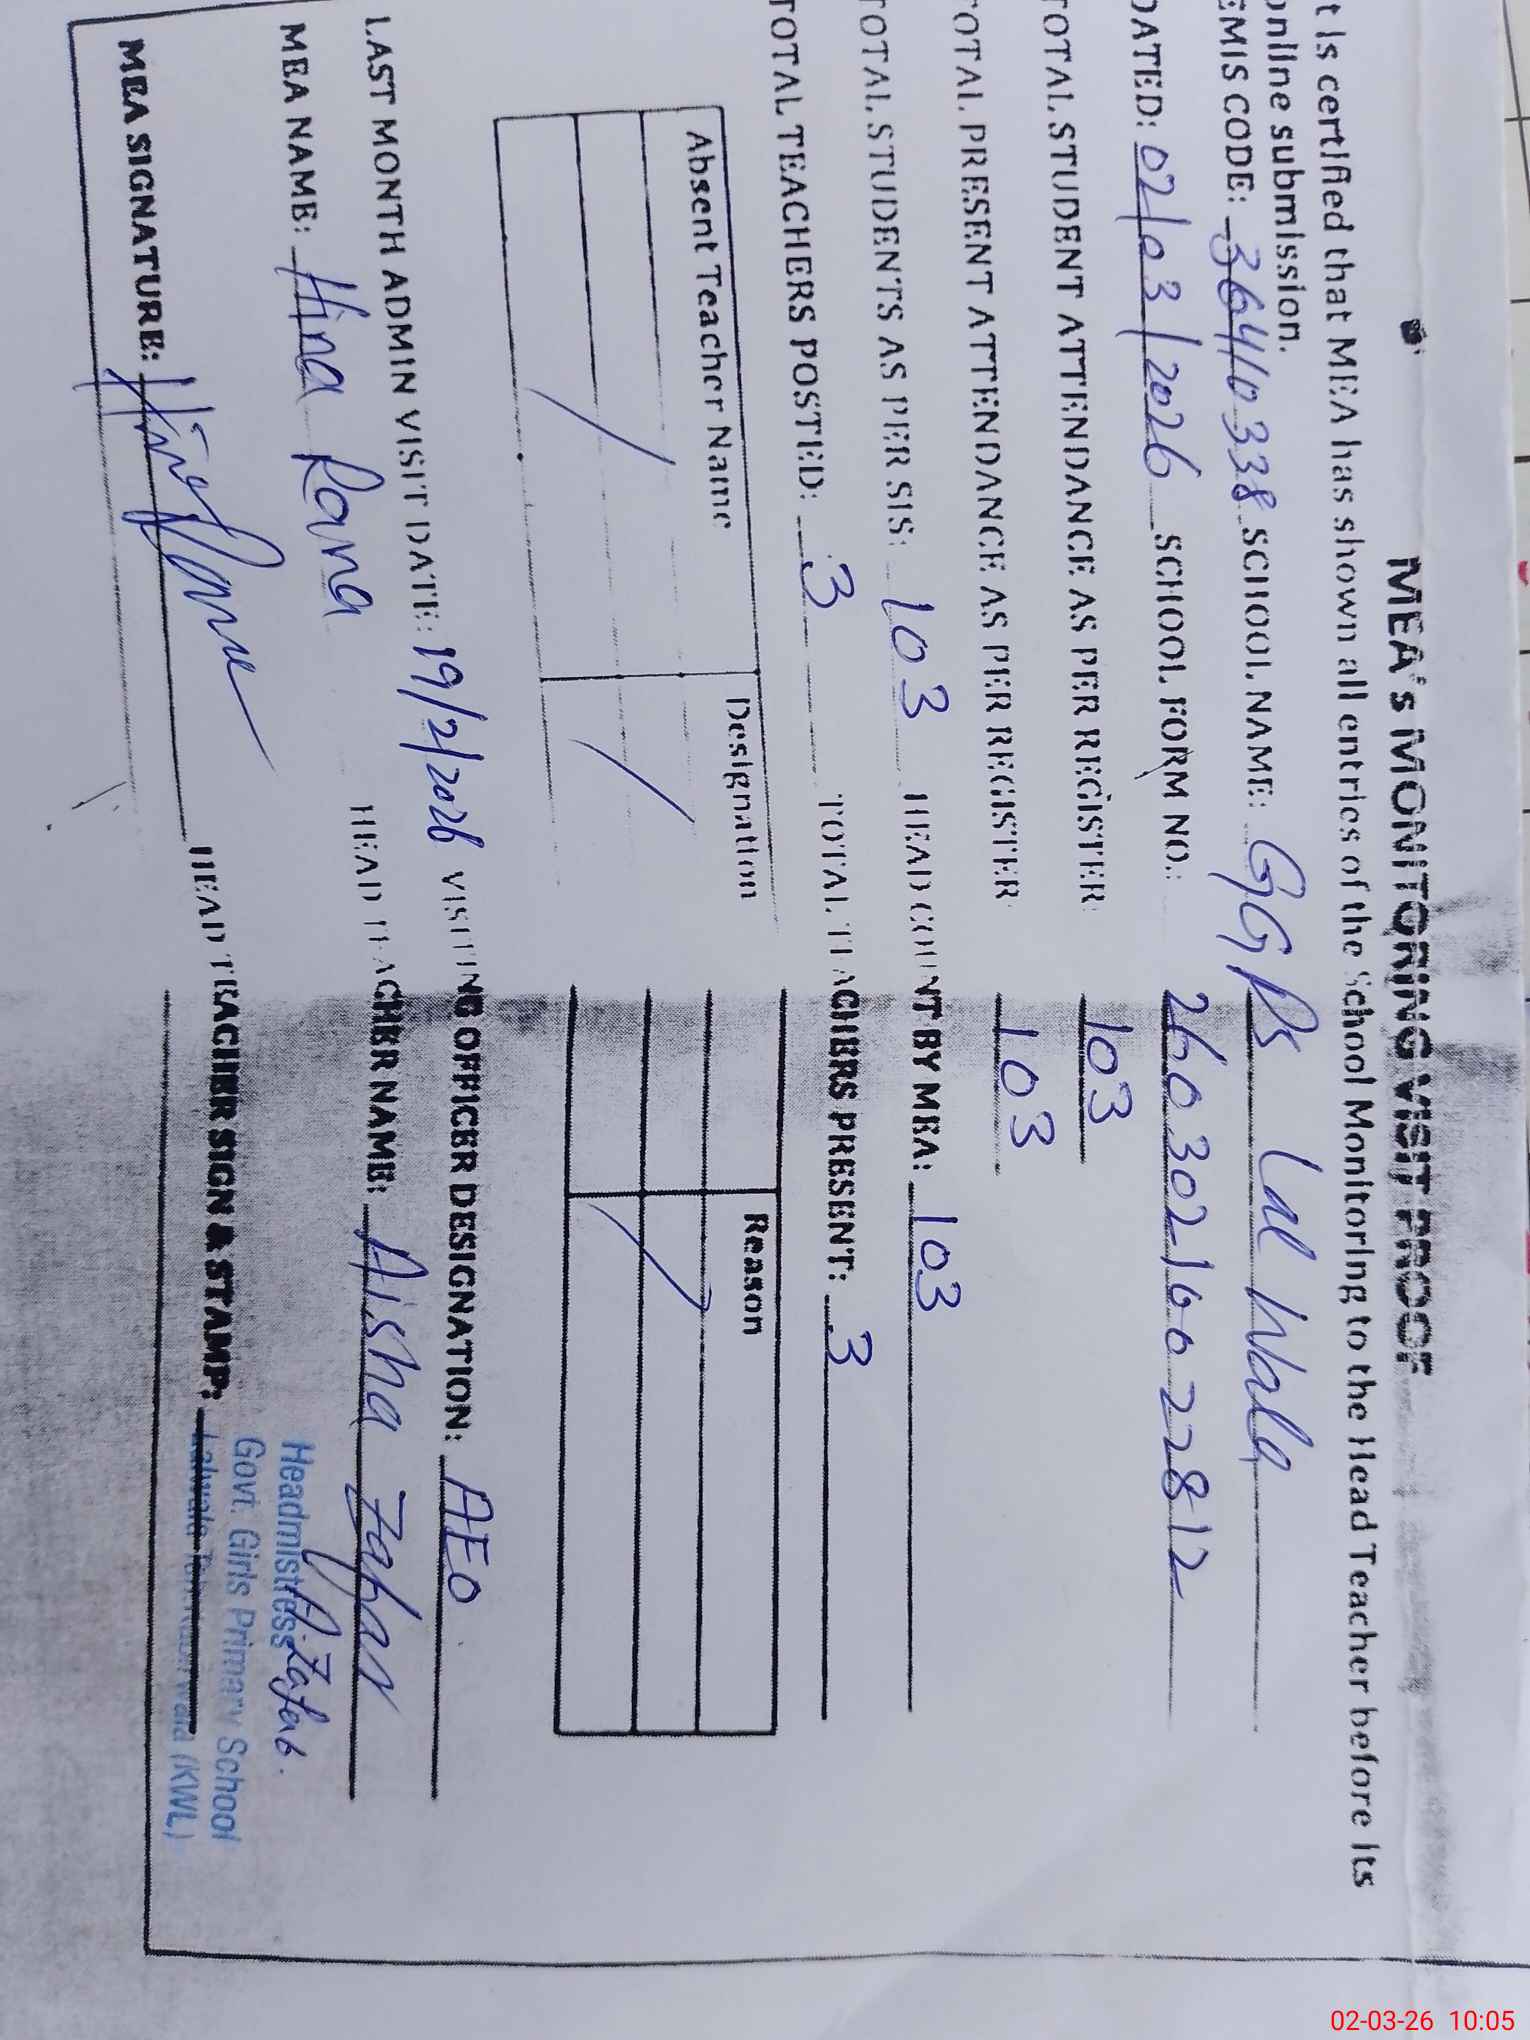 MEA's MONITORING VISIT PROOF
t is certified that MEA has shown all entries of the School Monitoring to the Head Teacher before its
online submission.
EMIS CODE: 36410338 SCHOOL NAME: GGPS Lal Wala
DATED: 02/03/2026 SCHOOL FORM NO.: 260302160022812
TOTAL STUDENT ATTENDANCE AS PER REGISTER: 103
TOTAL PRESENT ATTENDANCE AS PER REGISTER 103
TOTAL STUDENTS AS PER SIS: 103 HEAD COUNT BY MEA: 103
TOTAL TEACHERS POSTED: 3 TOTAL TEACHERS PRESENT: 3
Absent Teacher Name Designation Reason
LAST MONTH ADMIN VISIT DATE: 19/2/2026 VISITING OFFICER DESIGNATION: AEO
MEA NAME: Hina Rana HEAD TEACHER NAME: Aisha Zafar
MEA SIGNATURE: HEAD TEACHER SIGN & STAMP:
A.Zafar.
Headmistress
Govt. Girls Primary School
Lalwala (KWL)
02-03-26 10:05